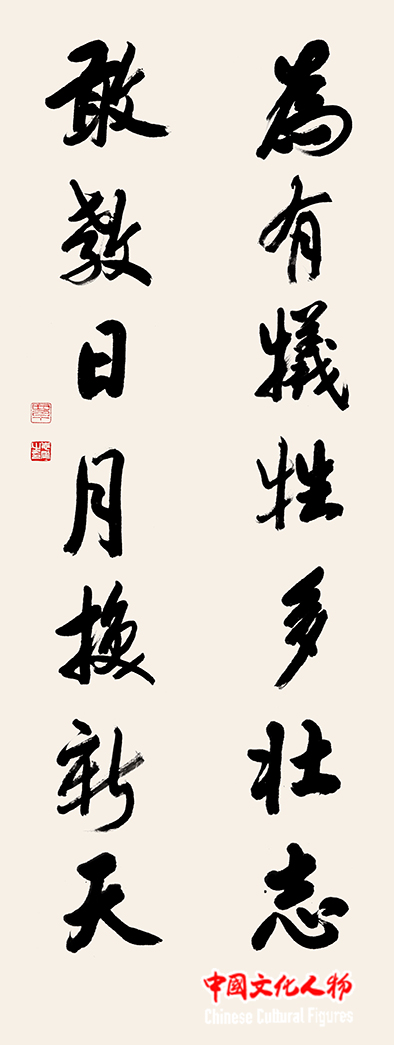 為有犧牲多壯志
敢教日月換新天
中國文化人物
Chinese Cultural Figures